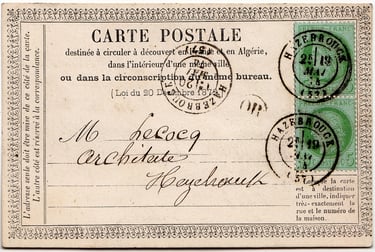 CARTE POSTALE
destinée à circuler à découvert en France et en Algérie,
dans l'intérieur d'une même ville
ou dans la circonscription du même bureau.
(Loi du 20 Décembre 187
HAZEBROUCK
OR
HAZEBROUCK
2E 19
MAI
(57)
HAZEBROUCK
2E 19
(57)
M Lecocq
Architecte
Hazebrouck
té de la carte
est à destination
d'une ville, indiquer
très-exactement la
rue et le numéro de
la maison.
L'adresse seule doit être mise de ce côté de la carte.
L'autre côté est réservé à la correspondance.